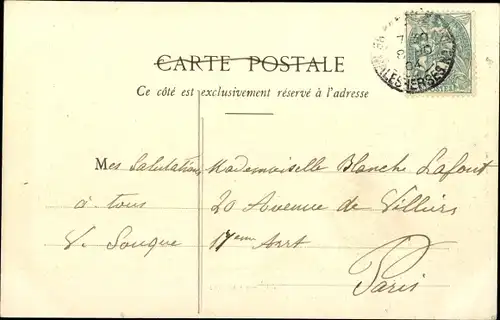 CARTE POSTALE
Ce côté est exclusivement réservé à l'adresse
Mes Salutations
à tous
V. Souque
Mademoiselle Blanche Lafont
20 Avenue de Villiers
17eme Arrt
Paris